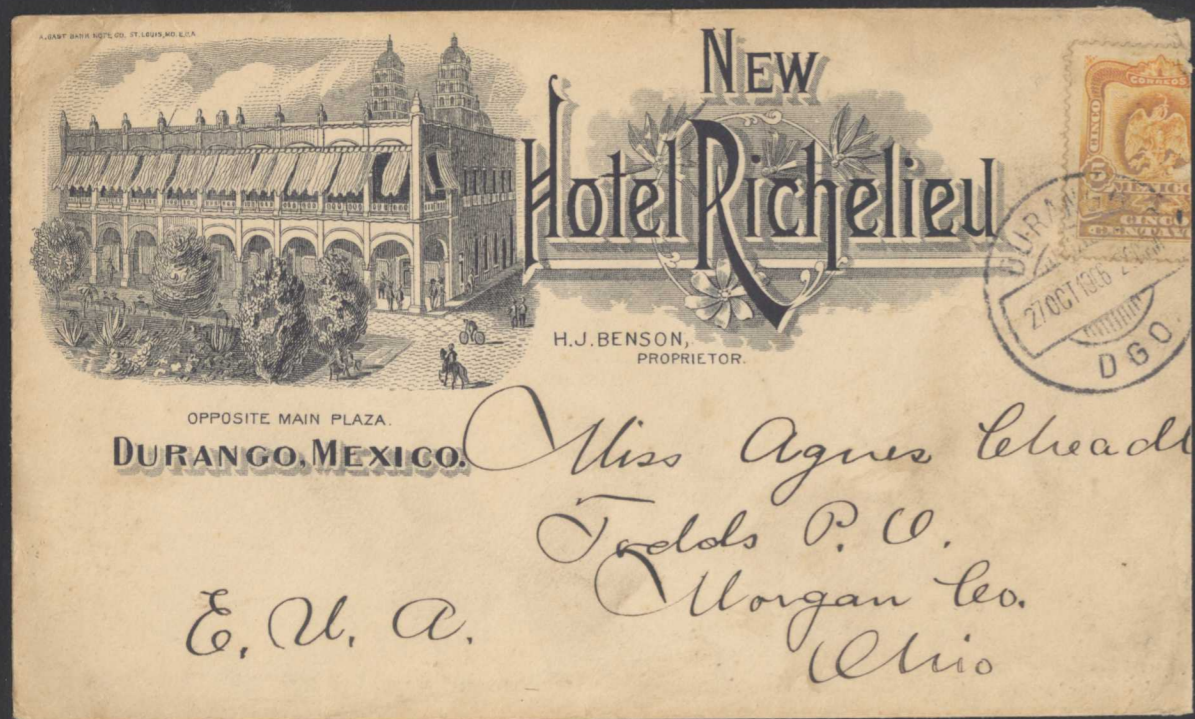 A. GAST BANK NOTE CO. ST. LOUIS, MO. U.S.A.
NEW
Hotel Richelieu
H.J. BENSON,
PROPRIETOR.
OPPOSITE MAIN PLAZA.
DURANGO, MEXICO.
CORREOS
CINCO
5
MEXICO
CINCO
CENTAV
27 OCT 1906
DGO.
Miss Agnes Cheadl
Todds P. O.
Morgan Co.
Ohio
E. U. A.